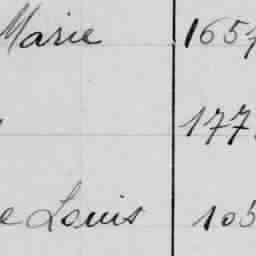 Marie 165
177
Louis 105